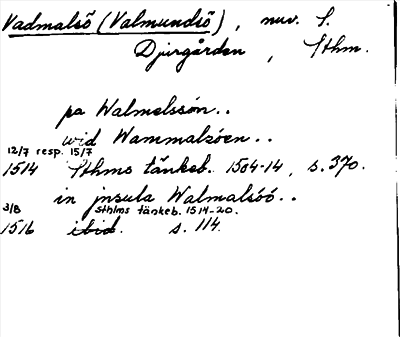 Vadmalsö (Valmundsö), nuv. S.
Djurgården, Sthm.
pa Walmelssön..
wid Wammalzöen..
12/7 resp. 15/7
1514 Sthms tänkeb. 1504-14, s. 370.
in jnsula Walmalsöö..
3/8 Sthlms tänkeb. 1514-20.
1516 ibid. s. 114.